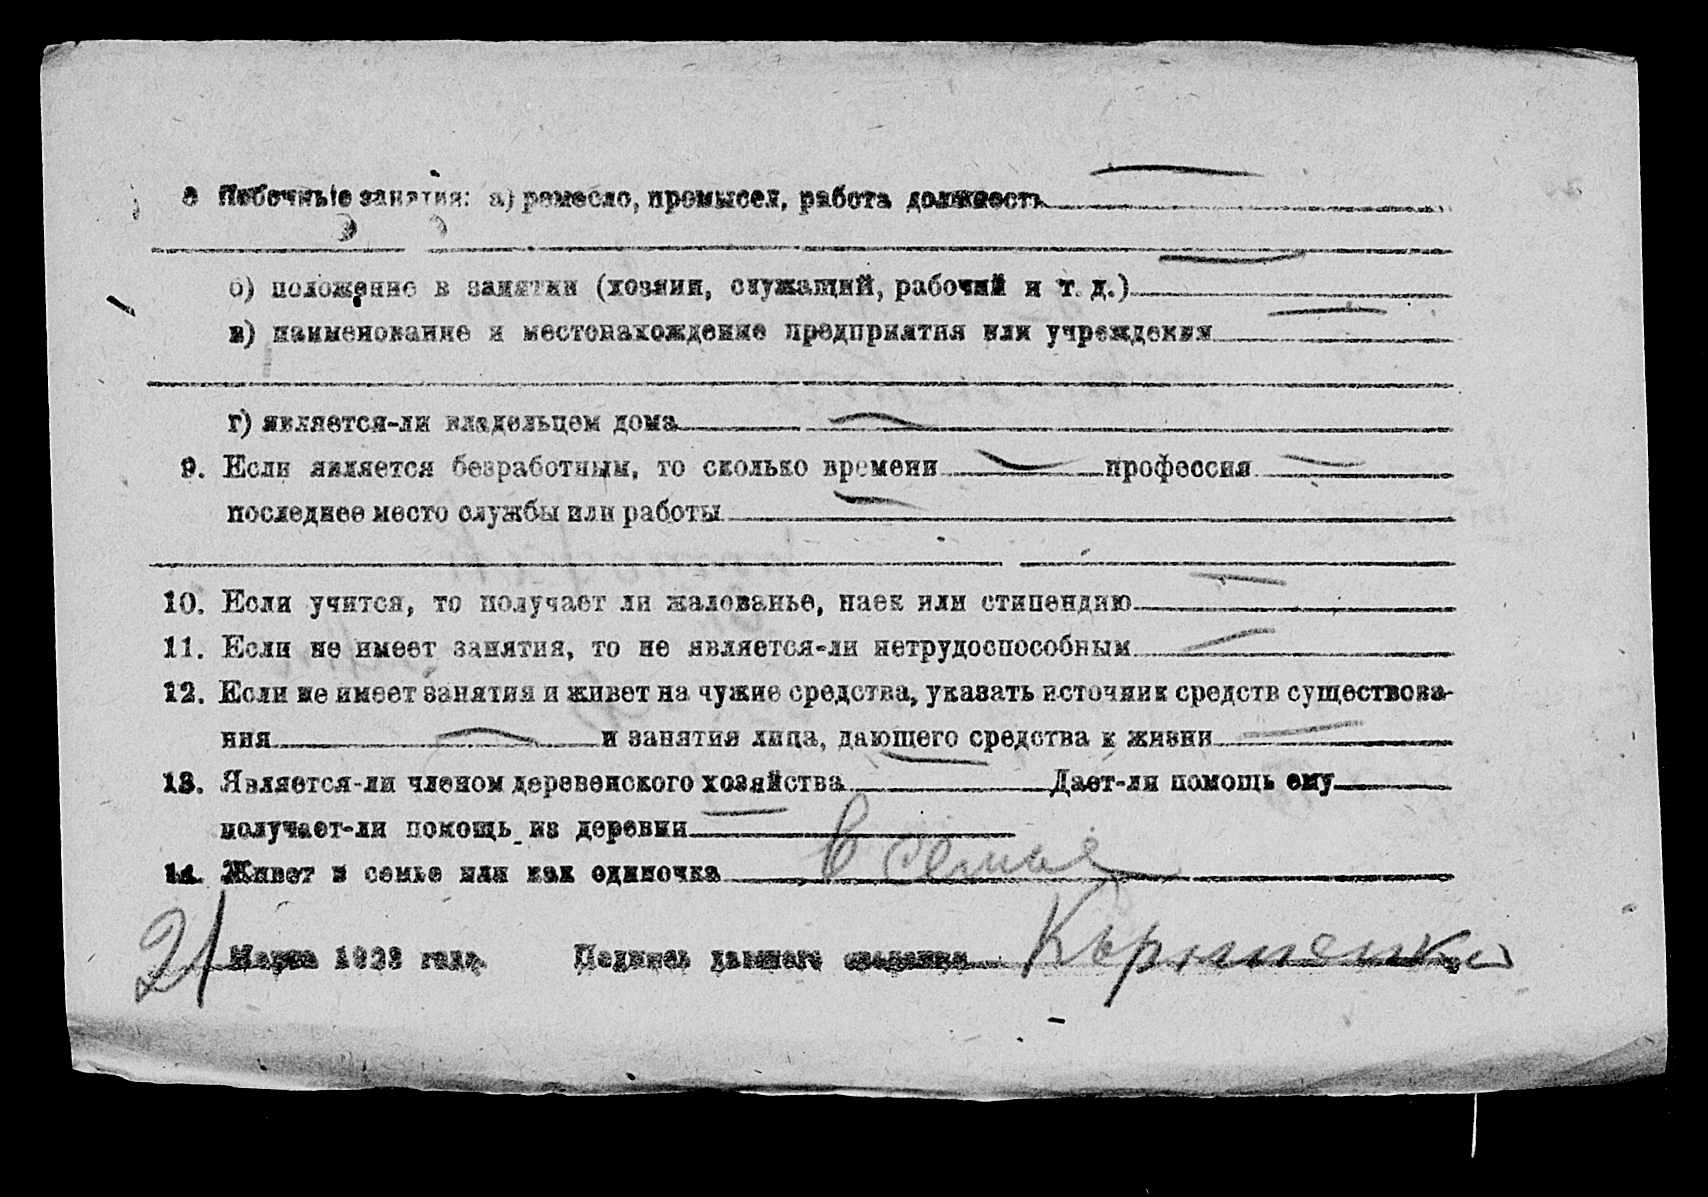 8 Побочные занятия: а) ремесло, промысел, работа должность —
б) положение в занятии (хозяин, служащий, рабочий и т. д.) —
в) наименование и местонахождение предприятия или учреждения —
г) является-ли владельцем дома —
9. Если является безработным, то сколько времени — профессия —
последнее место службы или работы —
10. Если учится, то получает ли жалованье, паек или стипендию —
11. Если не имеет занятия, то не является-ли нетрудоспособным —
12. Если не имеет занятия и живет на чужие средства, указать источник средств существова-
ния — и занятия лица, дающего средства к жизни —
13. Является-ли членом деревенского хозяйства — Дает-ли помощь ему
получает-ли помощь из деревни —
14. Живет в семье или как одиночка в семье
21 Марта 1923 года. Подпись давшего сведения